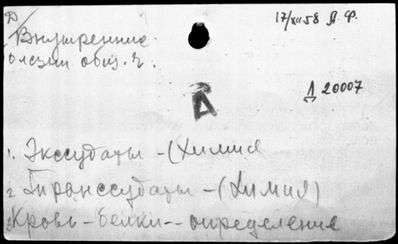 Д
17/XII 58 Я. Ф.
Внутренние
олезни общ. ч.
А
Д 20007
1. Экссудаты - (Химия
2 Транссудаты - (Химия)
3 Кровь - белки -- определение